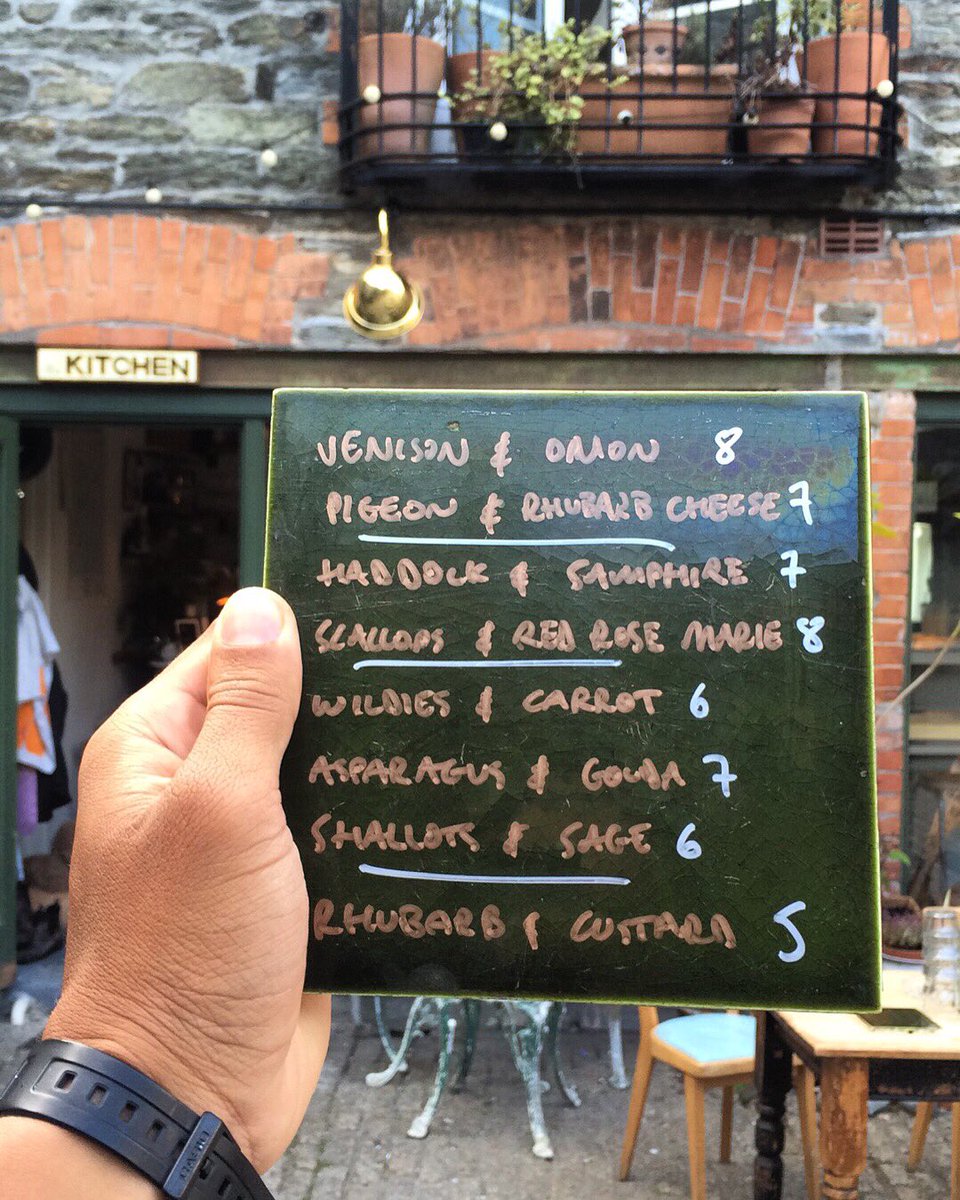 KITCHEN
VENISON & ONION 8
PIGEON & RHUBARB CHEESE 7
HADDOCK & SAMPHIRE 7
SCALLOPS & RED ROSE MARIE 8
WILDIES & CARROT 6
ASPARAGUS & GOUDA 7
SHALLOTS & SAGE 6
RHUBARB & CUSTARD 5
CASIO